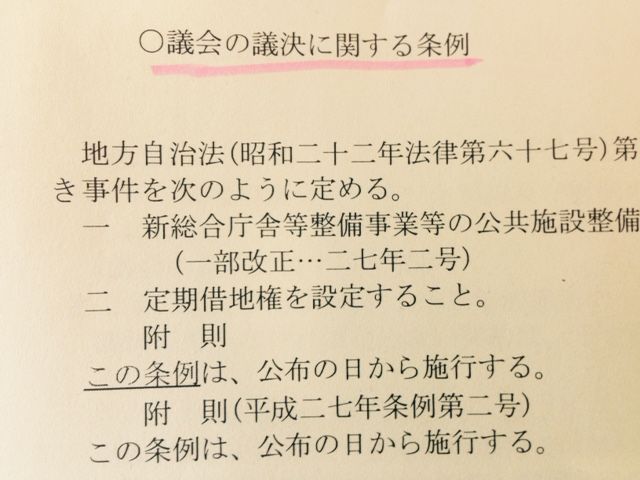 ○議会の議決に関する条例
地方自治法(昭和二十二年法律第六十七号)第
き事件を次のように定める。
一 新総合庁舎等整備事業等の公共施設整備
(一部改正…二七年二号)
二 定期借地権を設定すること。
附 則
この条例は、公布の日から施行する。
附 則(平成二七年条例第二号)
この条例は、公布の日から施行する。